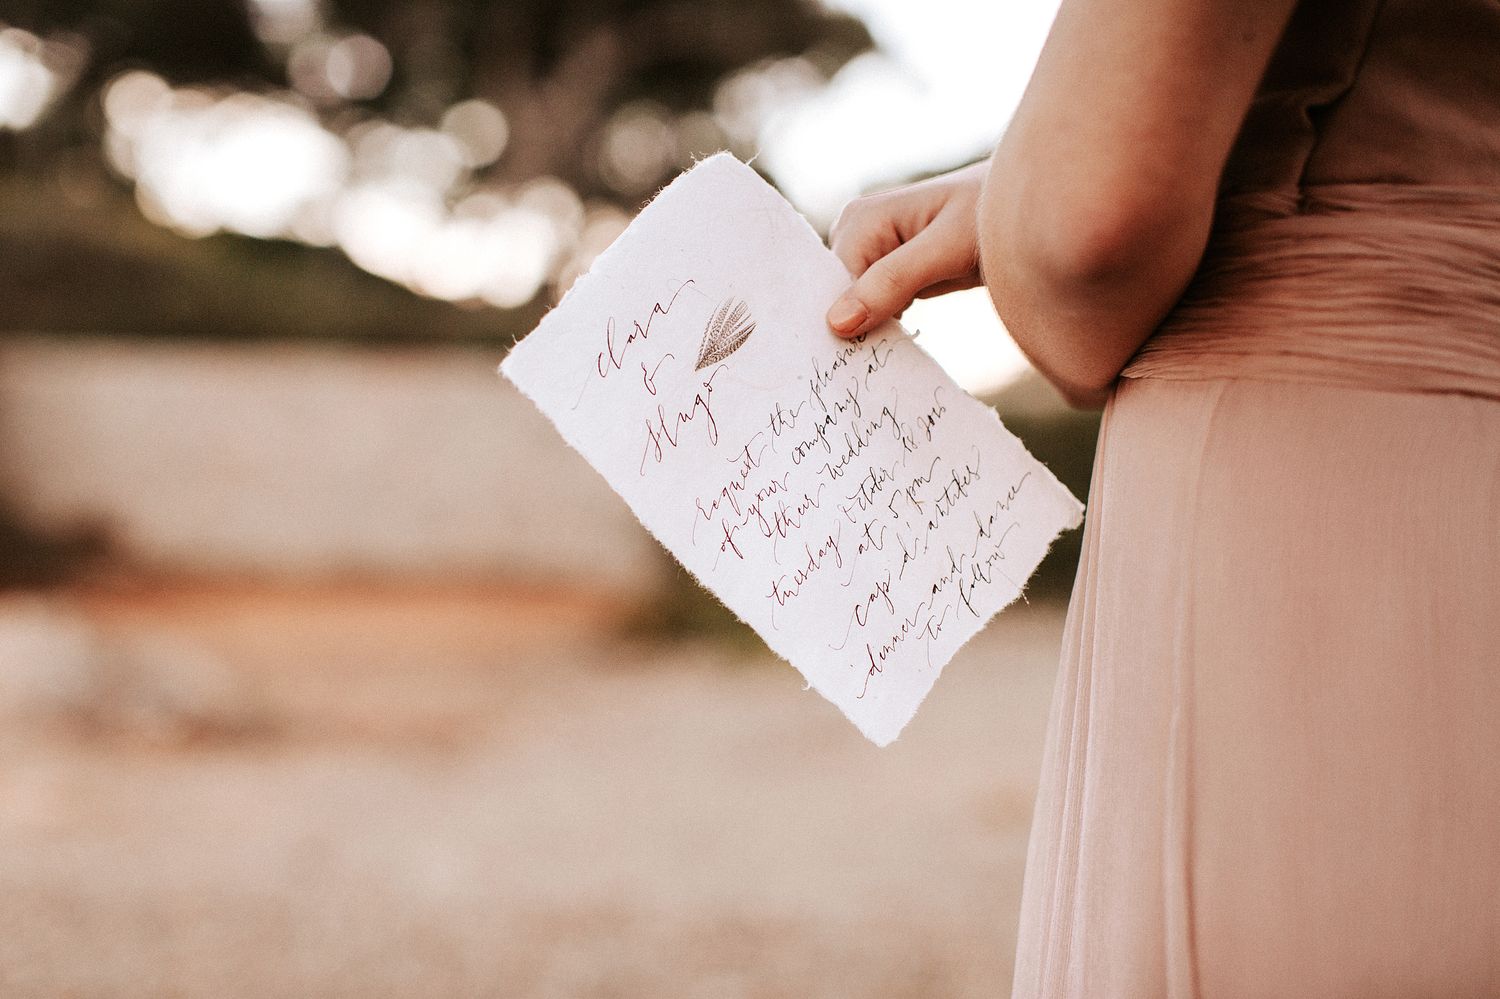 Clara
&
Hugo
request the pleasure
of your company at
their wedding
tuesday october 18 2016
at 5 pm
cap d'antibes
dinner and dance
to follow